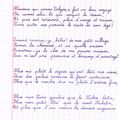 Heureux qui, comme Ulysse, a fait un beau voyage,
Ou comme cestuy-là qui conquit la toison,
Et puis est retourné, plein d'usage et raison,
Vivre entre ses parents le reste de son âge !
Quand reverrai-je, hélas ! de mon petit village
Fumer la cheminée, et en quelle saison
Reverrai-je le clos de ma pauvre maison,
Qui m'est une province, et beaucoup davantage ?
Plus me plaît le séjour qu'ont bâti mes aïeux,
Que des palais romains le front audacieux,
Plus que le marbre dur me plaît l'ardoise fine,
Plus mon Loire gaulois que le Tibre latin,
Plus mon petit Liré que le mont Palatin,
Et plus que l'air marin la douceur angevine.